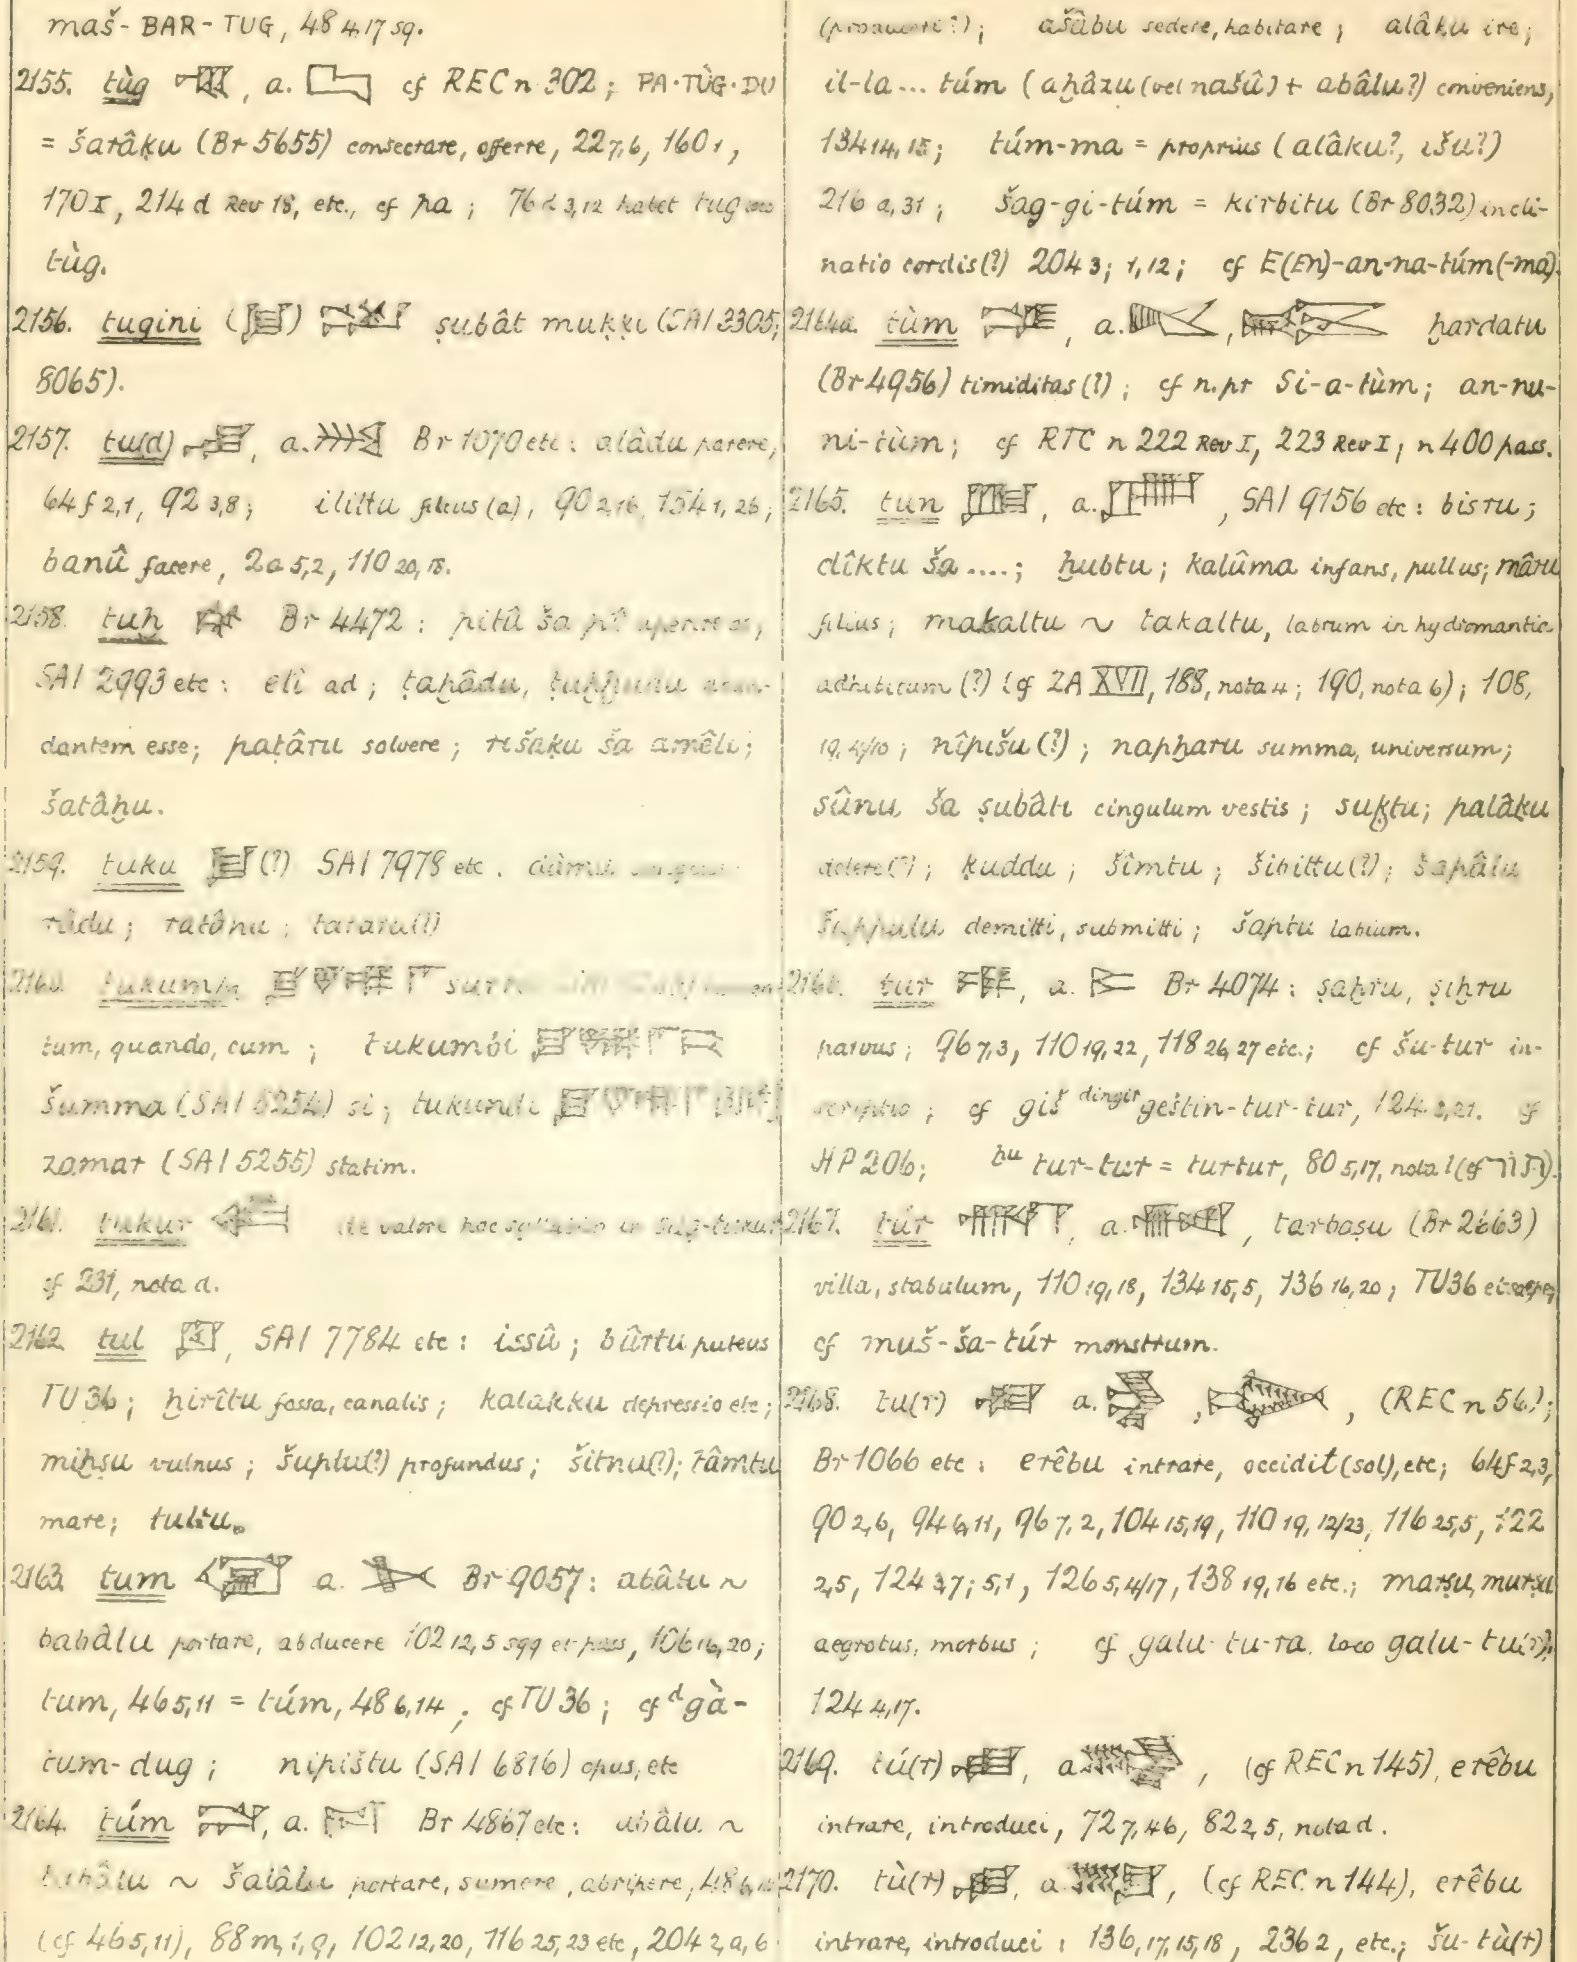 maš-BAR-TUG, 48 4,17 sq.
2155. tùg , a. cf REC n 302; PA·TÙG·DU
= šarâḳu (Br 5655) consecrare, offerre, 22 7,6, 160 1,
170 I, 214 d Rev 18, etc., cf pa; 76 d 3,12 habet tug loco
tùg.
2156. tugini ṣubât muḳḳi (SAI 3305;
8065).
2157. tu(d) , a. Br 1070 etc: alâdu parere,
64 f 2,1, 92 3,8; ilittu filius (a), 90 2,16, 154 1,26;
banû facere, 2 a 5,2, 110 20,18.
2158. tuḫ Br 4472: pitû ša pî aperire os,
SAI 2993 etc: eli ad; ṭaḫâdu,
dantem esse; paṭâru solvere; rišaḳu ša amêli;
šatâḫu.
2159. tuku (?) SAI 7978 etc.
râdu; ratânu; tararu(?)
2160.
tum, quando, cum; tukumbi
šumma (SAI 5254) si; tukundi
zamar (SAI 5255) statim.
2161. tukur de valore hoc
cf 231, nota d.
2162. tul , SAI 7784 etc: issû; bûrtu puteus
TU 36; ḫirîtu fossa, canalis; kalakku depressio etc;
miḫṣu vulnus; šuplu(?) profundus; šitnu(?); tâmtu
mare; tultu.
2163. tum a. Br 9057: abâlu ~
babâlu portare, abducere 102 12,5 sqq et pass, 106 16,20;
tum, 46 5,11 = túm, 48 6,14; cf TU 36; cf ᵈgà-
tum-dug; nipištu (SAI 6816) opus, etc
2164. túm , a. Br 4867 etc: abâlu ~
tabâlu ~ šalâlu portare, sumere, abripere, 48 6,
(cf 46 5,11), 88 m, 1,9, 102 12,20, 116 25,23 etc, 204 2,a,6
ašâbu sedere, habitare; alâku ire;
il-la... túm (aḫâzu (vel našû) + abâlu?) conveniens,
134 14,15; túm-ma = proprius (alâku?, išu?)
216 a,31; šag-gi-túm = kirbitu (Br 8032) incli-
natio cordis(?) 204 3; 1,12; cf E(En)-an-na-túm(-ma).
2164a. tùm , a. , ḫardatu
(Br 4956) timiditas(?); cf n.pr Si-a-tùm; an-nu-
ni-tùm; cf RTC n 222 Rev I, 223 Rev I; n 400 pass.
2165. tun , a. , SAI 9156 etc: bisru;
dîktu ša ....; ḫubtu; kalûma infans, pullus; mâru
filius; makaltu ~ takaltu, labrum in hydromantia
adhibitum (?) (cf ZA XVII, 188, nota 4; 190, nota 6); 108,
19, 4/10; nîpišu(?); napḫaru summa, universum;
sûnu ša ṣubâti cingulum vestis; suḳtu; palâḳu
dolere(?); ḳuddu; šîmtu; šibittu(?); šapâlu
šuppulu demitti, submitti; šaptu labium.
2166. tur , a. Br 4074: ṣaḫru, ṣiḫru
parvus; 96 7,3, 110 19,22, 118 26,27 etc.; cf šu-tur in-
scriptio; cf giš ᵈⁱⁿᵍⁱʳgeštin-tur-tur, 124 3,21. cf
HP 206; ḫᵘ tur-tur = turtur, 80 5,17, nota 1 (cf תור).
2167. túr , a. , tarbaṣu (Br 2663)
villa, stabulum, 110 19,18, 134 15,5, 136 16,20; TU 36
cf muš-ša-túr monstrum.
2168. tu(r) a. , , (REC n 56);
Br 1066 etc: erêbu intrare, occidit (sol), etc; 64 f 2,3,
90 2,6, 94 6,11, 96 7,2, 104 15,19, 110 19,12/23, 116 25,5, 122
2,5, 124 3,7; 5,1, 126 5,4/17, 138 19,16 etc.; marṣu, murṣu
aegrotus, morbus; cf galu-tu-ra loco galu-tu(r),
124 4,17.
2169. tú(r) , a , (cf REC n 145), erêbu
intrare, introduci, 72 7,46, 82 2,5, nota d.
2170. tù(r) , a , (cf REC n 144), erêbu
intrare, introduci: 136, 17,15,18, 236 2, etc.; šu-tù(r)